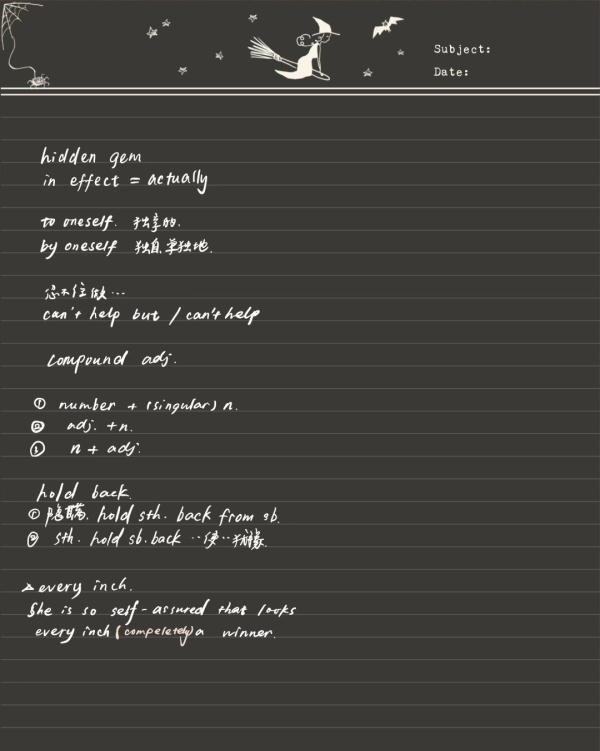 Subject:
Date:
hidden gem
in effect = actually
to oneself. 独享的.
by oneself 独自,单独地.
忍不住做…
can't help but / can't help
compound adj.
① number + (singular) n.
② adj. + n.
③ n + adj.
hold back.
① 隐瞒. hold sth. back from sb.
② sth. hold sb. back ‥使‥犹豫.
△ every inch.
She is so self-assured that looks
every inch (compeletely) a winner.